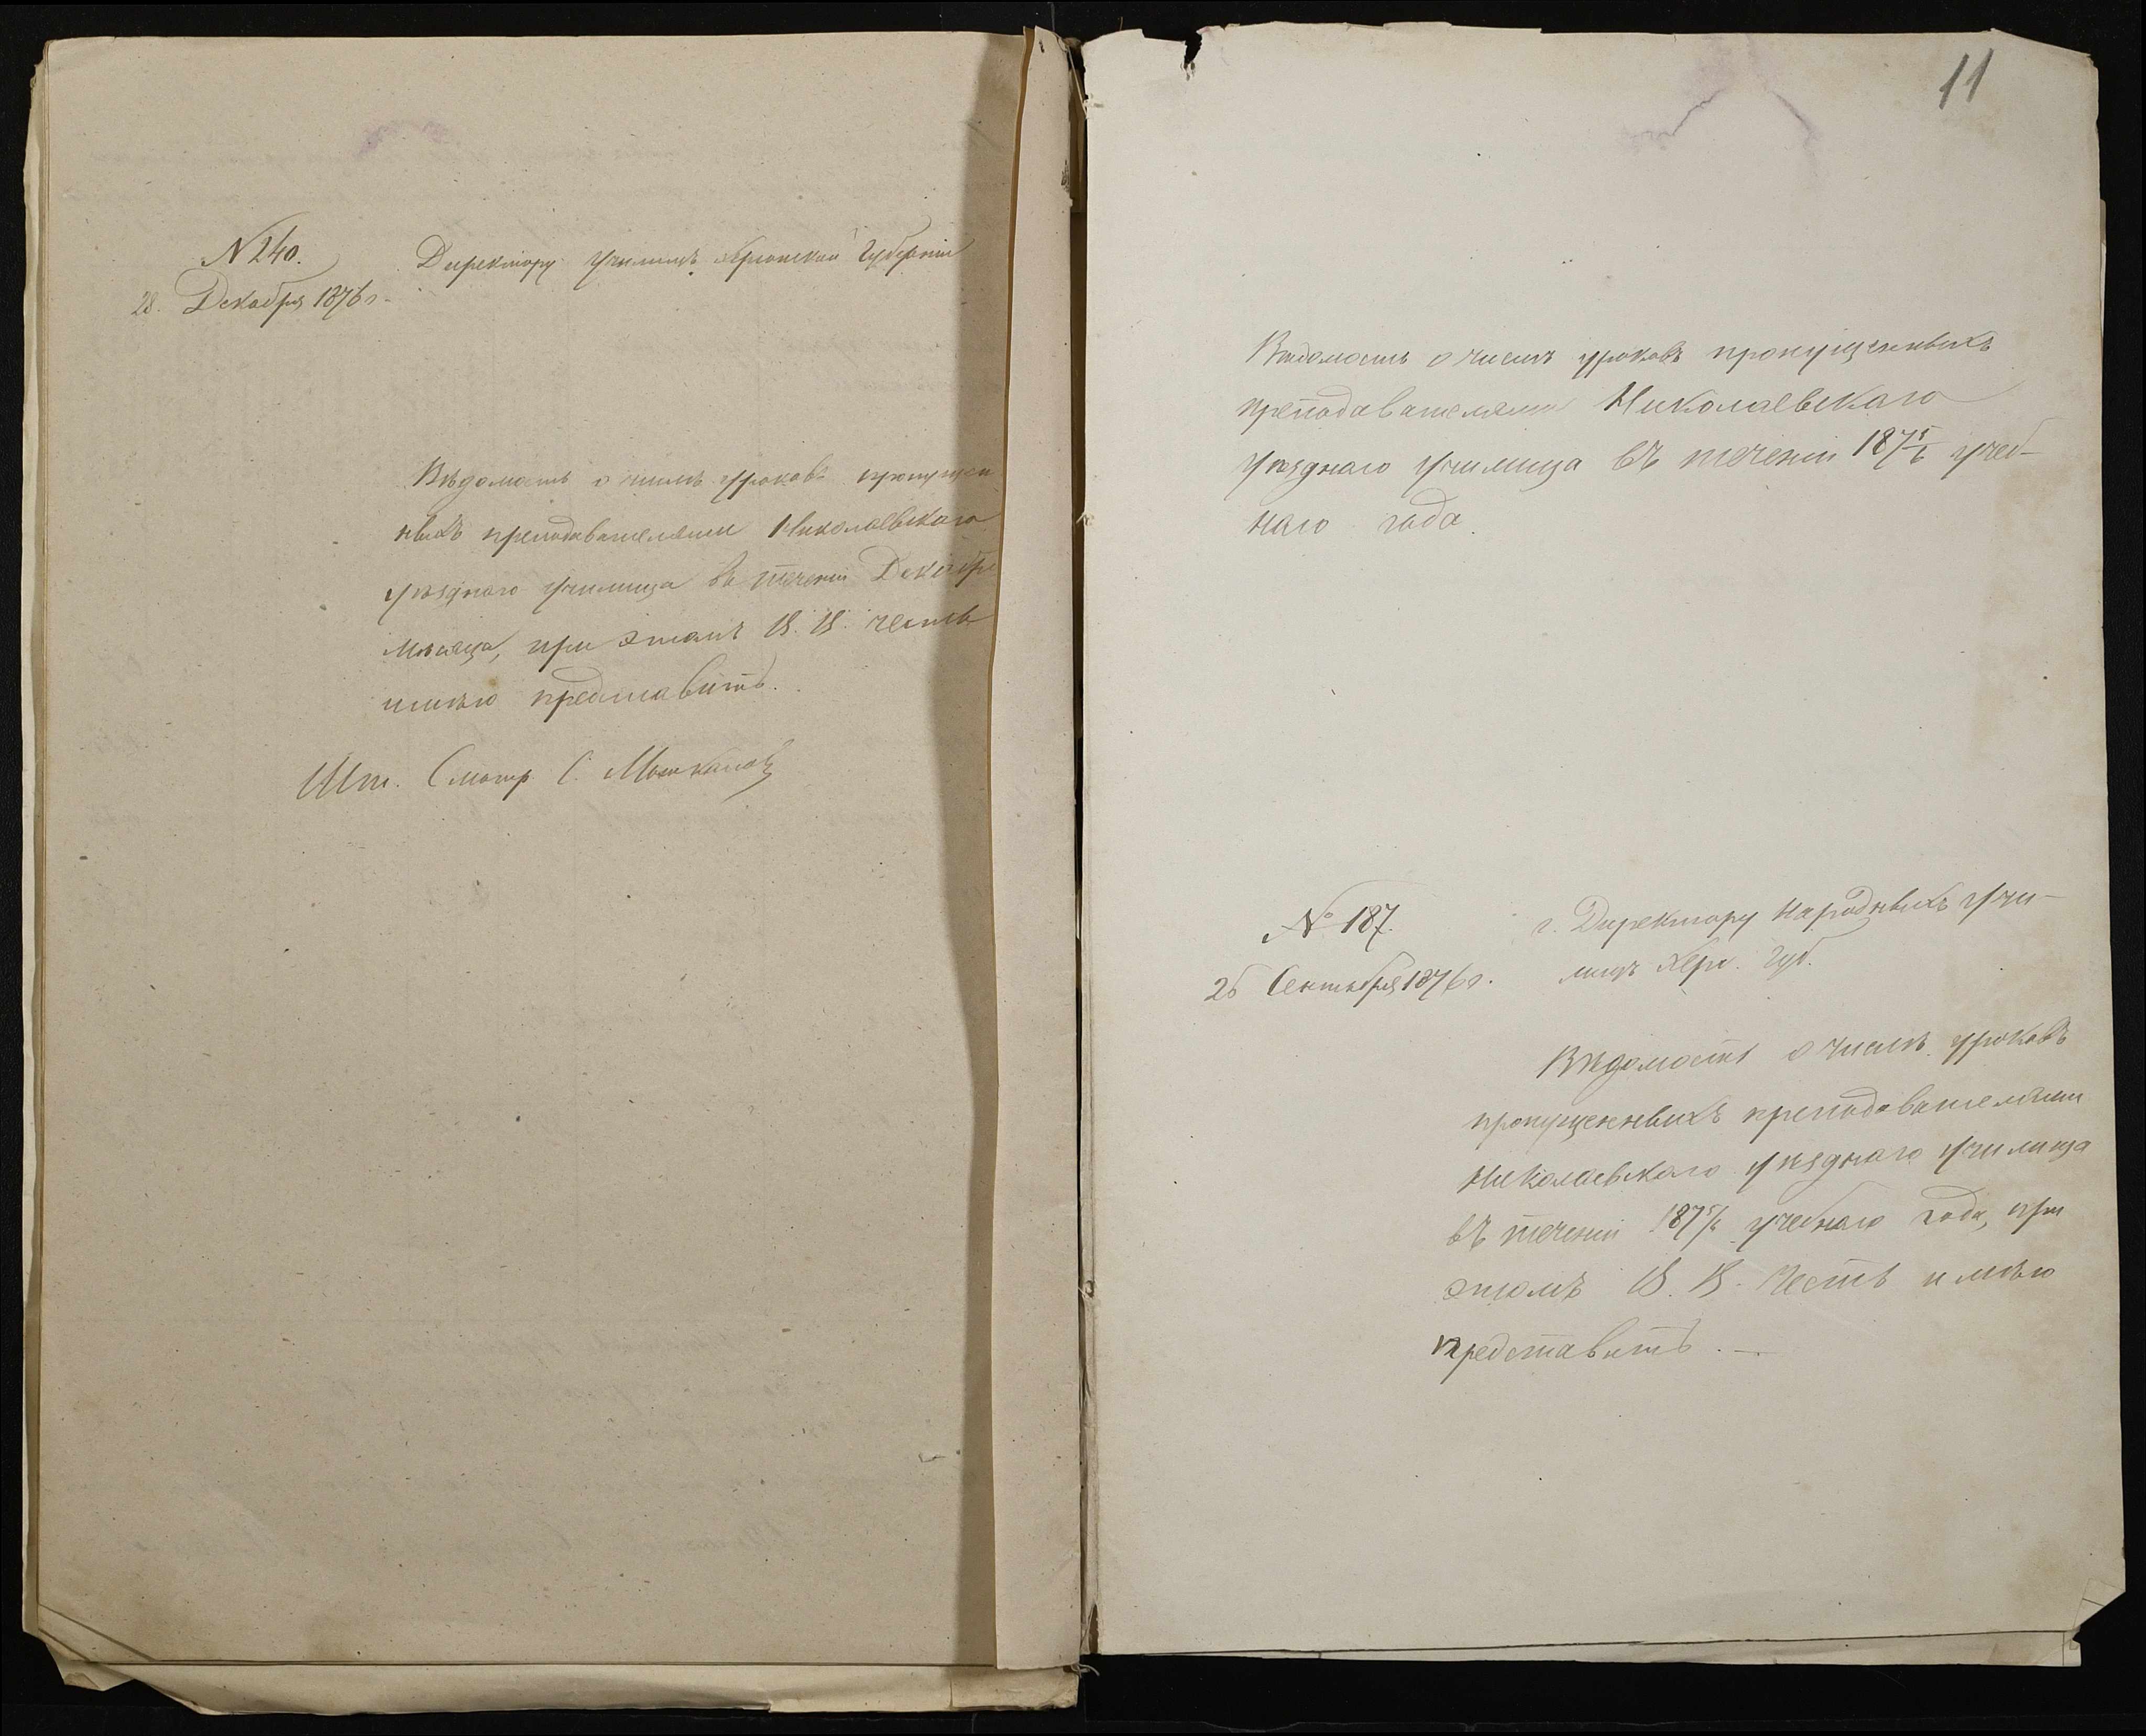 N 240.
28. Декабря 1876 г.
Директору училищъ Херсонской Губерніи
Вѣдомость о числѣ уроковъ пропущен
ныхъ преподавателями Николаевскаго
уѣзднаго училища въ теченіи Декабря
мѣсяца, при этомъ В. В. честь
имѣю представить.
Шт. Смотр С.
11
Вѣдомость о числѣ уроковъ пропущенныхъ
преподавателями Николаевскаго
уѣзднаго училища въ теченіи 187 5/6 учеб-
наго года.
№ 187.
26 Сентября 1876 г.
г. Директору Народныхъ Учи-
лищъ Херс. Губ.
Вѣдомость о числѣ уроковъ
пропущенныхъ преподавателями
Николаевскаго уѣзднаго училища
въ теченіи 187 5/6 учебнаго года, при
этомъ В. В. честь имѣю
представить. —